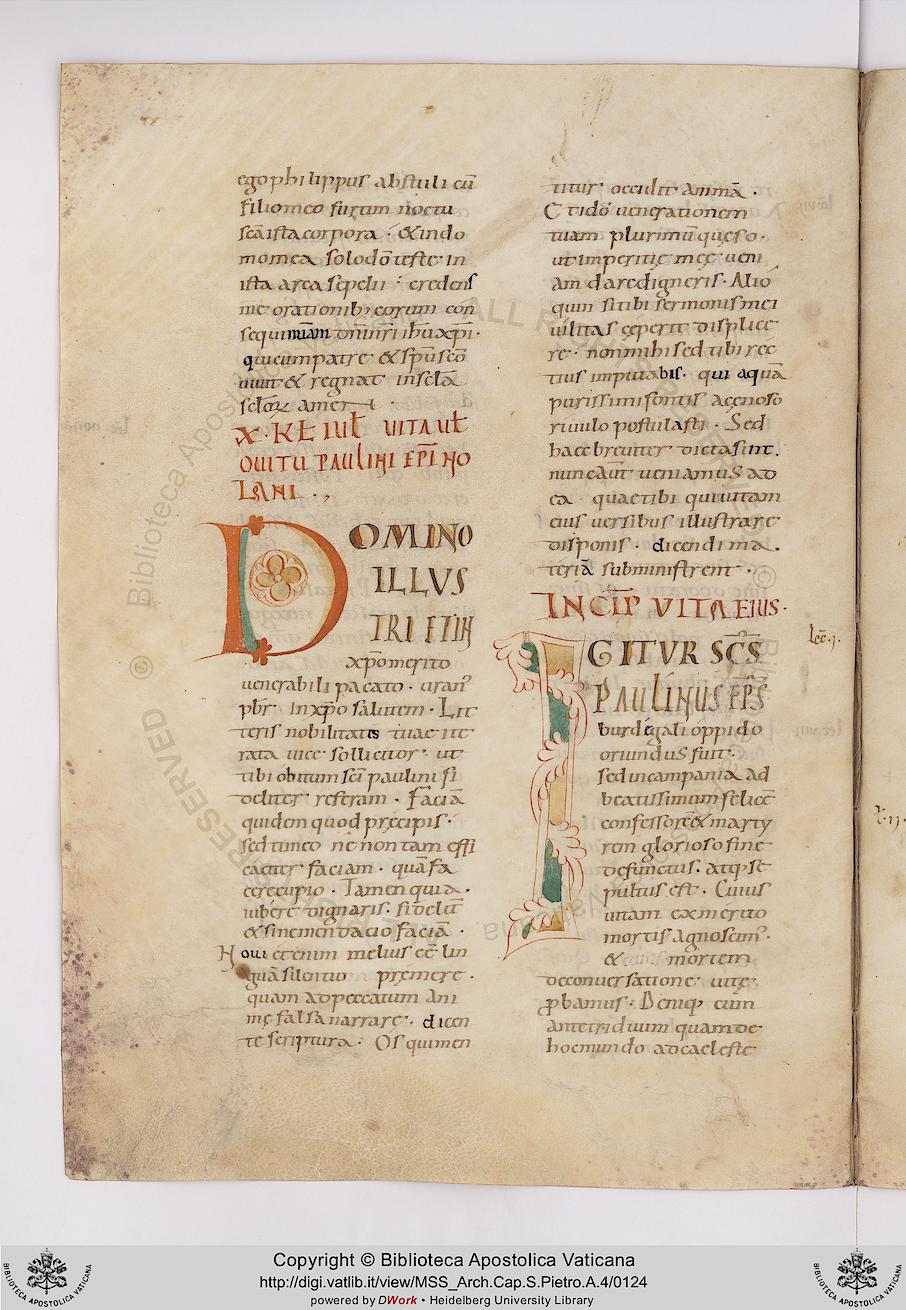 ego philippus abstuli cū
filio meo furtim noctu
sc̄a ista corpora · & in do
mo mea solo dō teste in
ista arca sepelii · credens
me orationib; eorum con
sequi uniam dn̄i nr̄i ihū xp̄i ·
qui cum patre & spū scō
uiuit & regnat in sc̄la
sc̄lorꝝ amen ·
X · KL̄ IUL̄ UITA UL̄
OUITU PAULINI EPĪ NO
LANI .,
DOMINO
ILLVS
TRI ET IN
xp̄o merito
uenerabili pacato · uran᷒
pbr̄ · in xp̄o salutem · Lit
teris nobilitatis tuae ite
rata uice sollicitor · ut
tibi obitum sc̄i paulini fi
deliter referam · Faciā
quidem quod precipis ·
sed timeo ne non tam effi
caciter faciam · quā fa
cere cupio · Tamen quia ·
iubere dignaris · fidelit̄
& sine mendacio faciā ·
Noui etenim melius eē lin
guā silentio premere ·
quam ad peccatum ani
mę falsa narrare · dicen
te scriptura · Os qui men
titur occidit animā ·
Et ideo uenerationem
tuam plurimū quęso ·
ut imperitię męę ueni
am dare digneris · Alio
quin si tibi sermonis mei
uilitas cęperit displice
re · non mihi sed tibi rec
tius imputabis · qui aquā
purissimi fontis a cęnoso
riuulo postulasti · Sed
haec breuiter dicta sint.
nunc aūt ueniamus ad
ea quae tibi qui uitam
eius uersibus illustrare
disponis · dicendi ma
teriā subministrent ·
INCIP̄ VITA EIUS ·
IGITVR SC̄S
PAULINUS EP̄S
burdegali oppido
oriundus fuit ·
sed in campania ad
beatissimum felicē
confessorē & marty
rem glorioso fine
defunctus · atq; se
pultus est · Cuius
uitam ex merito
mortis agnoscim᷒ ·
& mortem
de conuersatione uitę
ꝓbamus · Deniq; cum
ante triduum quam de
hoc mundo ad caeleste
Lec̄ · j ·
Copyright © Biblioteca Apostolica Vaticana
http://digi.vatlib.it/view/MSS_Arch.Cap.S.Pietro.A.4/0124
powered by DWork • Heidelberg University Library